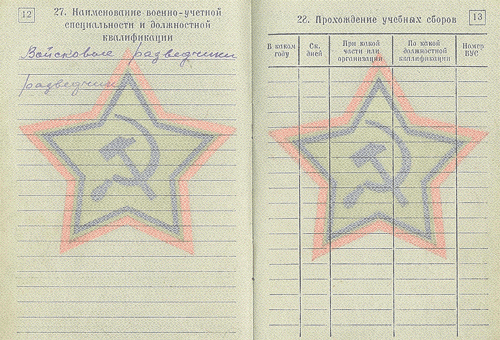 12
27. Наименование военно-учетной
специальности и должностной
квалификации
Войсковые разведчики
разведчик
28. Прохождение учебных сборов
13
В каком году
Ск. дней
При какой части или организации
По какой должностной квалификации
Номер ВУС